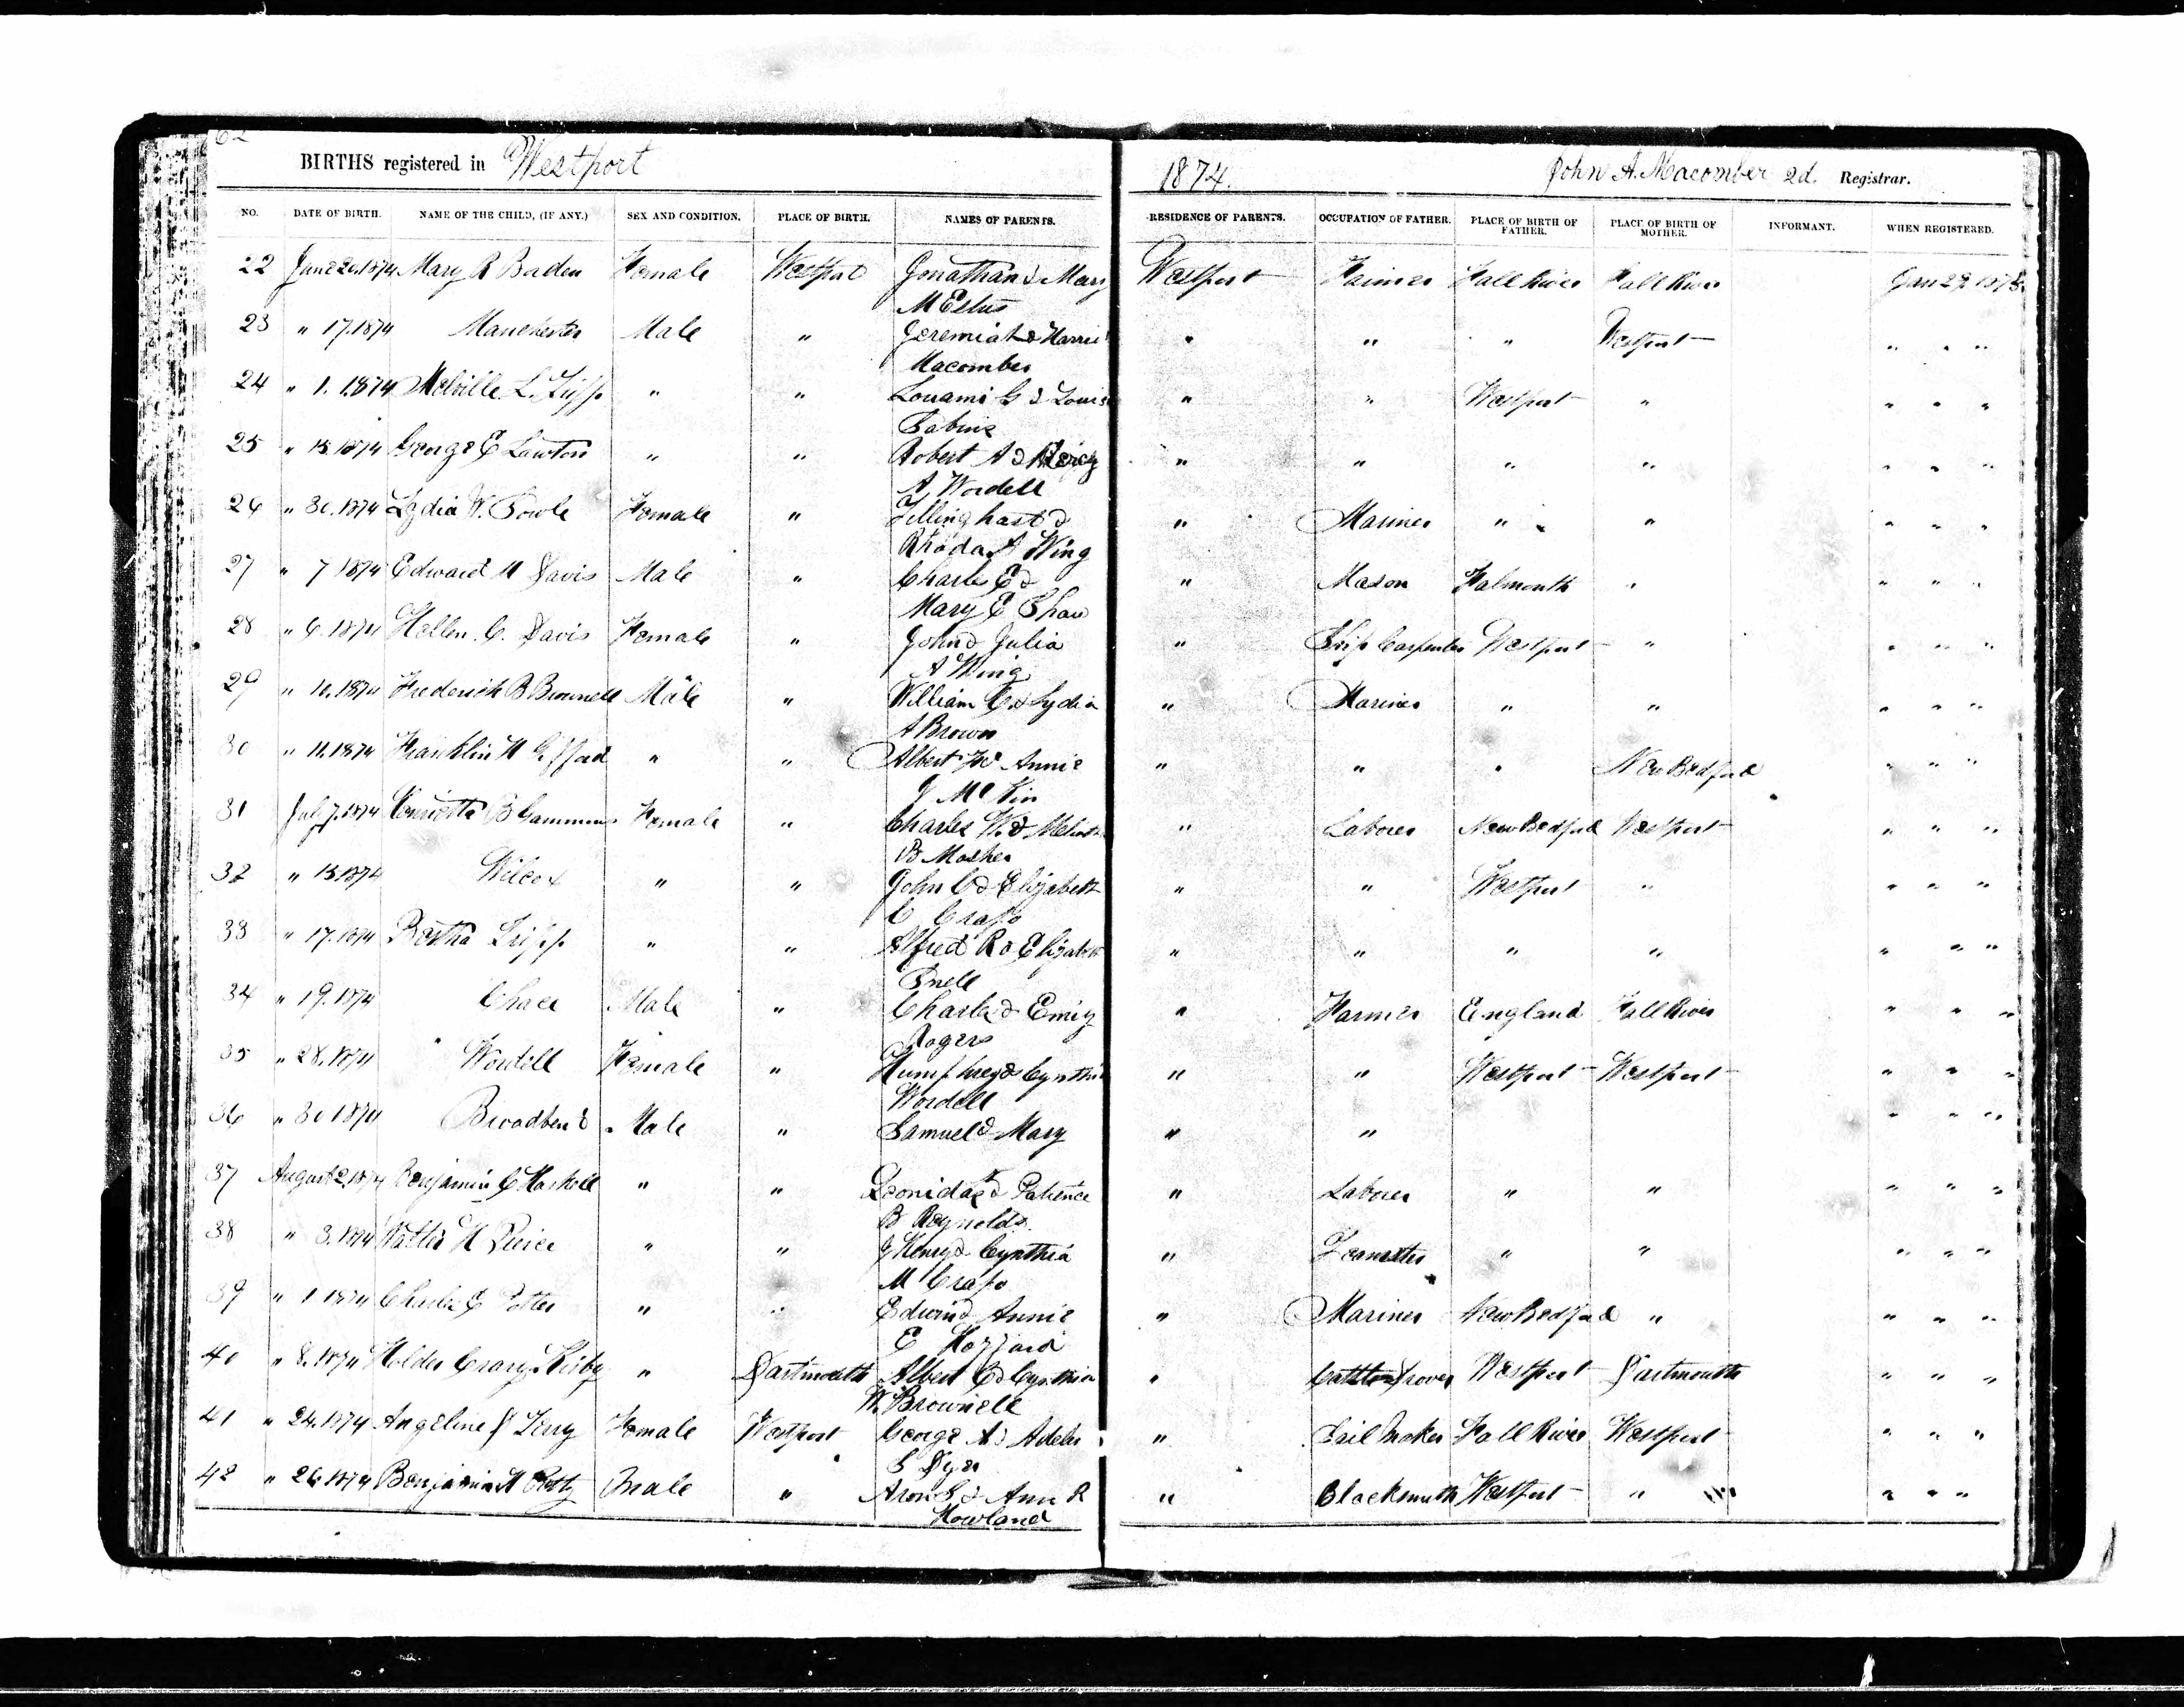 62
BIRTHS registered in Westport 1874. John A. Macomber 2d. Registrar.
NO. DATE OF BIRTH. NAME OF THE CHILD, (IF ANY.) SEX AND CONDITION. PLACE OF BIRTH. NAMES OF PARENTS. RESIDENCE OF PARENTS. OCCUPATION OF FATHER. PLACE OF BIRTH OF FATHER. PLACE OF BIRTH OF MOTHER. INFORMANT. WHEN REGISTERED.
22 June 26.1874 Mary R Borden Female Westport Jonathan & Mary Westport Farmer Fall River Fall River Jan 29. 1875
M Estus
23 " 17.1874 Manchester Male " Jeremiah & Harriet " " " Westport " " "
Macomber
24 " 1.1874 Melville L. Tripp " " Louami G & Louisa " " Westport " " " "
Sabins
25 " 15.1874 George E Lawton " " Robert A & Mercy " " " " " " "
A Wordell
26 " 30.1874 Lydia W. Sowle Female " Tillinghast & " Mariner " " " " "
Rhoda A Wing
27 " 7 1874 Edward H Davis Male " Charles E & " Mason Falmouth " " " "
Mary E Shaw
28 " 6.1874 Hellen. C. Davis Female " John & Julia " Ship Carpenter Westport " " " "
A Wing
29 " 10.1874 Frederick B Brownell Male " William C. & Lydia " Mariner " " " " "
A Brown
30 " 11.1874 Franklin H Gifford " " Albert F & Annie " " " New Bedford " " "
J McKin
31 July 7.1874 Henrietta B Gammons Female " Charles W. & " Laborer New Bedford Westport " " "
B Mosher
32 " 15.1874 Wilcox " " John C & Elizabeth " " Westport " " " "
C Crapo
33 " 17.1874 Bertha Tripp " " Alfred R & Elizabeth " " " " " " "
Snell
34 " 19.1874 Chace Male " Charles & Emily " Farmer England Fall River " " "
Rogers
35 " 28.1874 Wordell Female " Humphrey & Cynthia " " Westport Westport " " "
Wordell
36 " 30 1874 Broadbent Male " Samuel & Mary " " " " "
37 August 2.1874 Benjamin C Haskell " " Leonidas & Patience " Laborer " " " " "
B Reynolds.
38 " 3.1874 Walter H Pierce " " J Henry & Cynthia " Teamster " " " " "
M Crapo
39 " 1 1874 Charles E Potter " " Edwin & Annie " Mariner New Bedford " " " "
E Hozzard
40 " 8.1874 Holder Crary Kirby " Dartmouth Albert C & Cynthia " Cattle Drover Westport Dartmouth " " "
W. Brownell
41 " 24.1874 Angeline J Terry Female Westport George A & Adelia " Sail Maker Fall River Westport " " "
S Dyer
42 " 26.1874 Benjamin A Petty Male " Aron S & Ann R " Blacksmith Westport " " " "
Howland